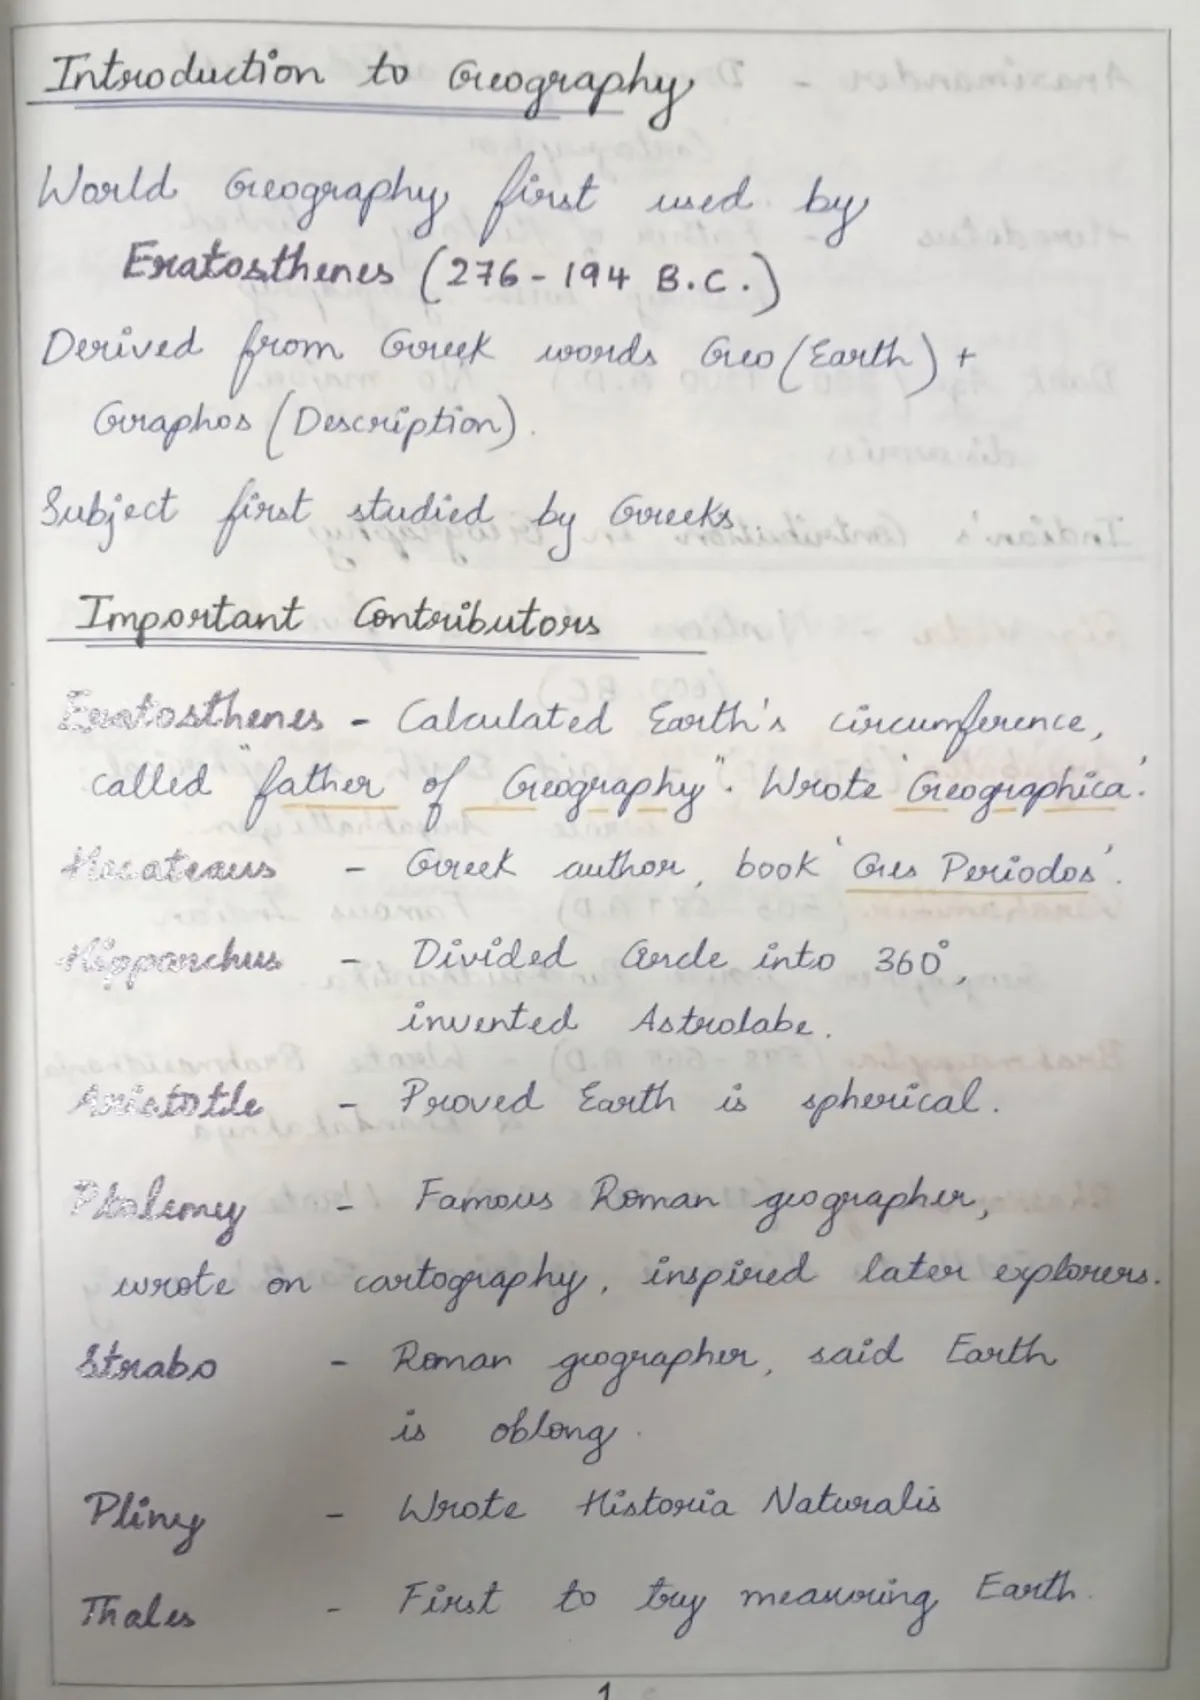 Introduction to Geography
World Geography first used by
Eratosthenes (276-194 B.C.)
Derived from Greek words Geo (Earth) +
Graphos (Description).
Subject first studied by Greeks.
Important Contributors
Eratosthenes - Calculated Earth's circumference,
called "father of Geography". Wrote 'Geographica'.
Hecateaus - Greek author, book 'Ges Periodos'.
Hipparchus - Divided Circle into 360°,
invented Astrolabe.
Aristotle - Proved Earth is spherical.
Ptolemy - Famous Roman geographer,
wrote on cartography, inspired later explorers.
Strabo - Roman geographer, said Earth
is oblong.
Pliny - Wrote Historia Naturalis
Thales - First to try measuring Earth.
1